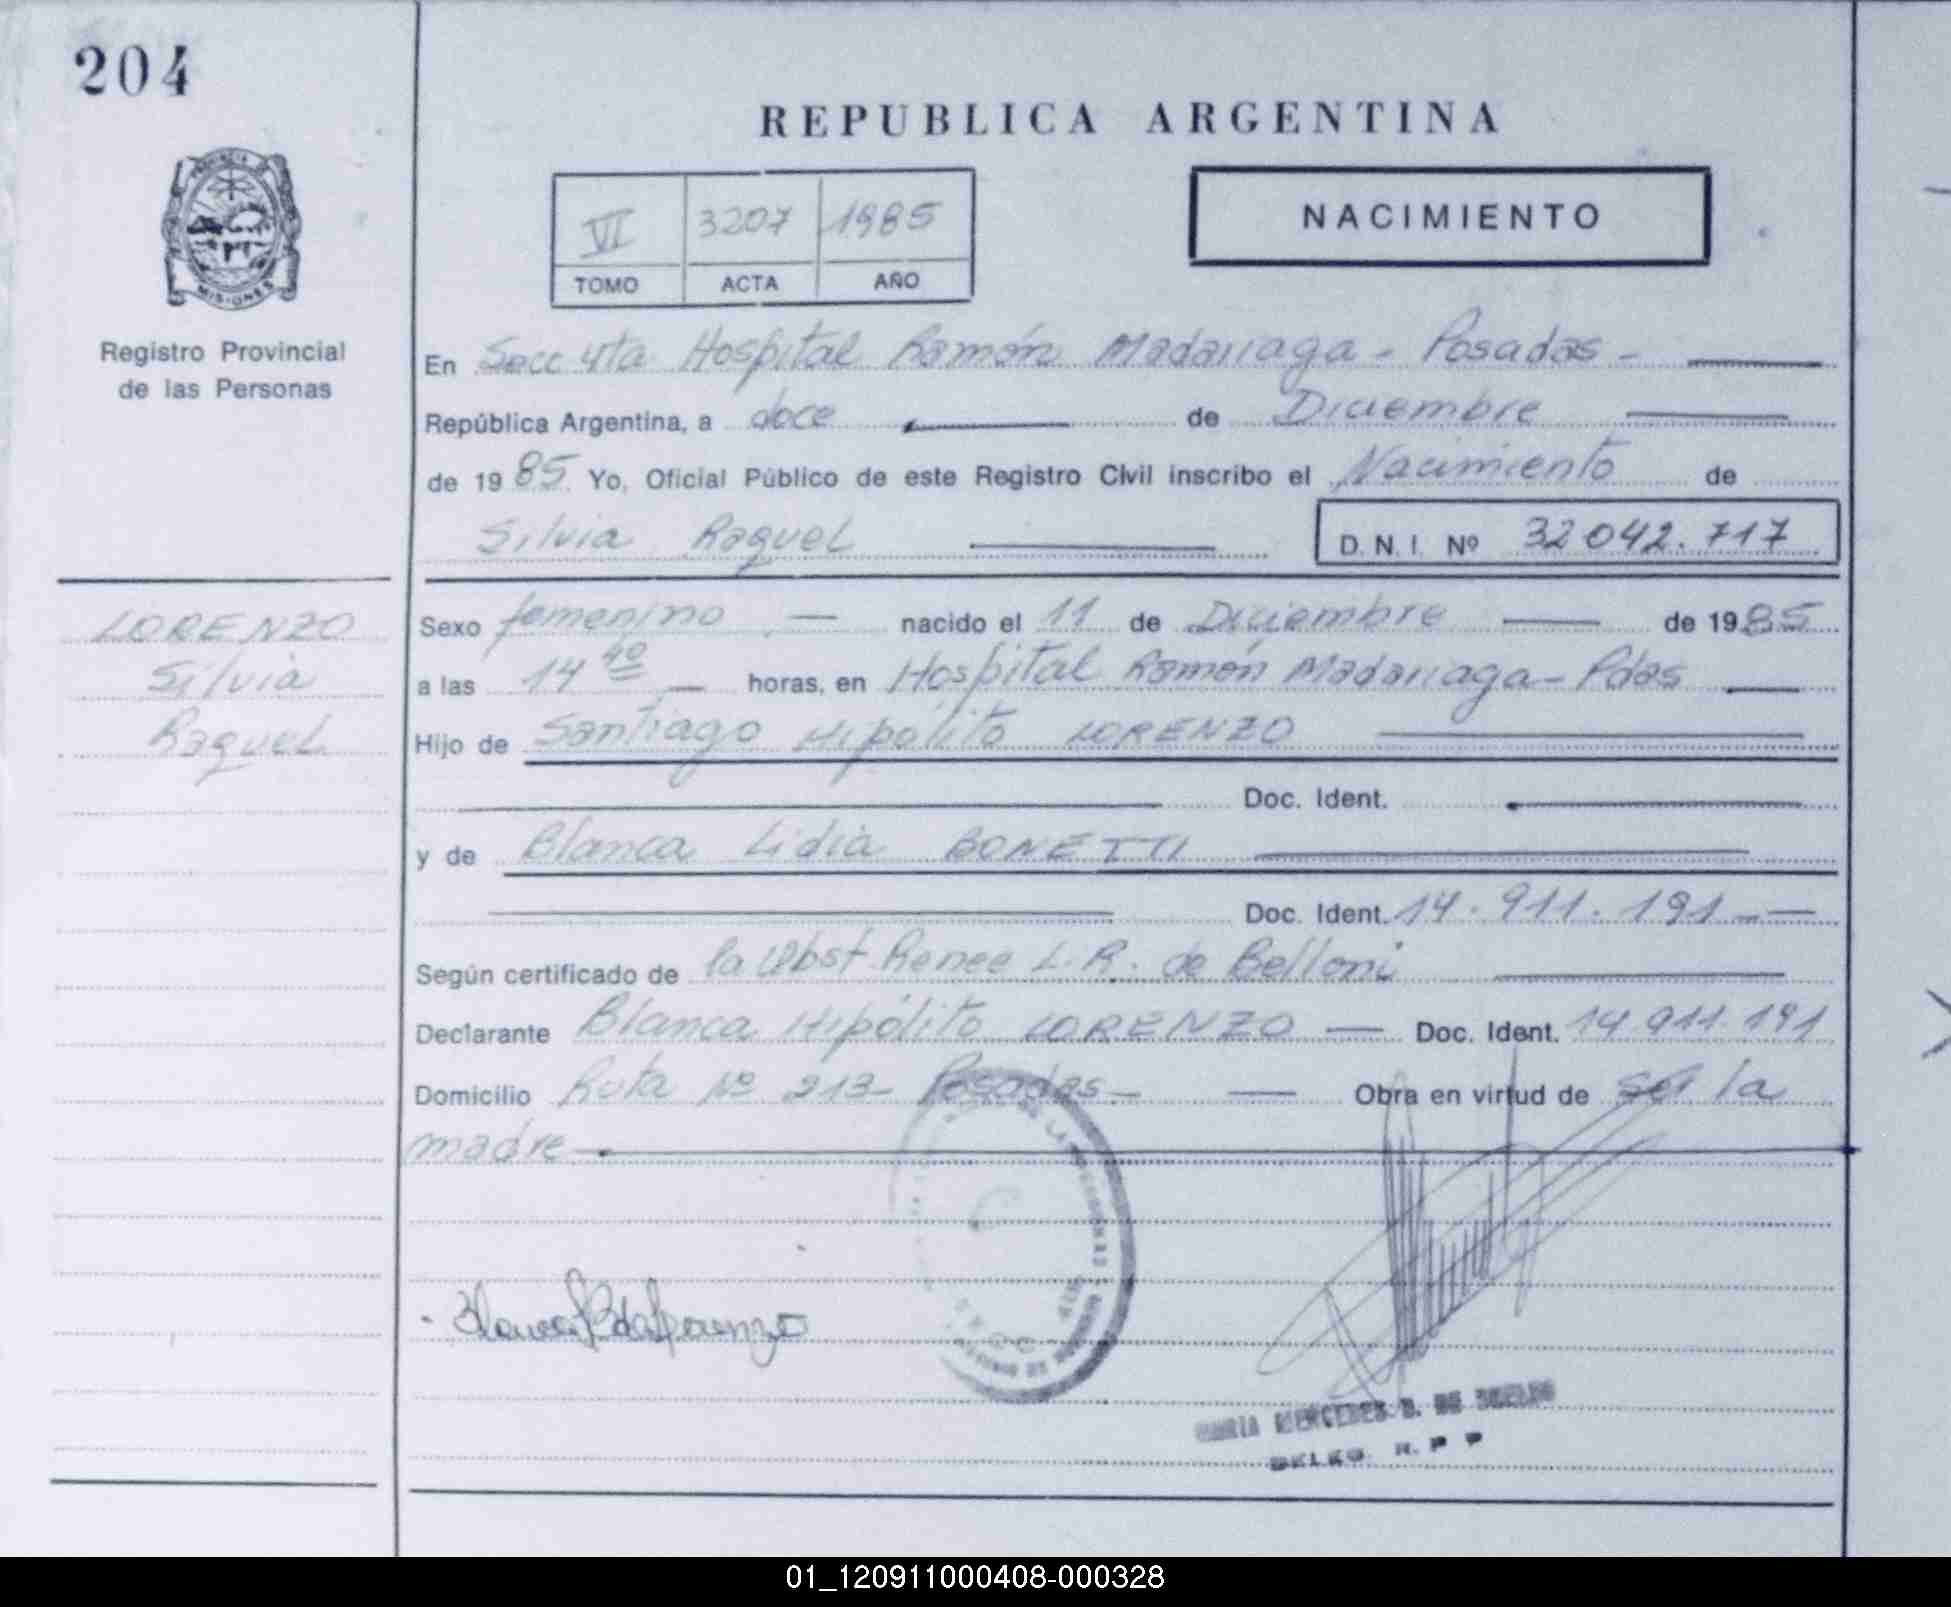 204
REPUBLICA ARGENTINA
PROVINCIA
MISIONES
Registro Provincial
de las Personas
VI 3207 1985
TOMO ACTA AÑO
NACIMIENTO
En Secc 4ta Hospital Ramón Madariaga - Posadas -
República Argentina, a doce de Diciembre
de 1985 Yo, Oficial Público de este Registro Civil inscribo el Nacimiento de
Silvia Raquel D.N.I. Nº 32 042.717
LORENZO
Silvia
Raquel
Sexo femenino — nacido el 11 de Diciembre de 1985
a las 14 40 — horas, en Hospital Ramón Madariaga - Pdas
Hijo de Santiago Hipólito LORENZO
Doc. Ident.
y de Blanca Lidia BONETTI
Doc. Ident. 14.911.191
Según certificado de la Obst. Renee L.R. de Belloni
Declarante Blanca Hipólito LORENZO — Doc. Ident. 14 911.191
Domicilio Ruta Nº 213 - Posadas - Obra en virtud de ser la
madre
MARIA MERCEDES B. DE
DELEG. R. P P
01_120911000408-000328